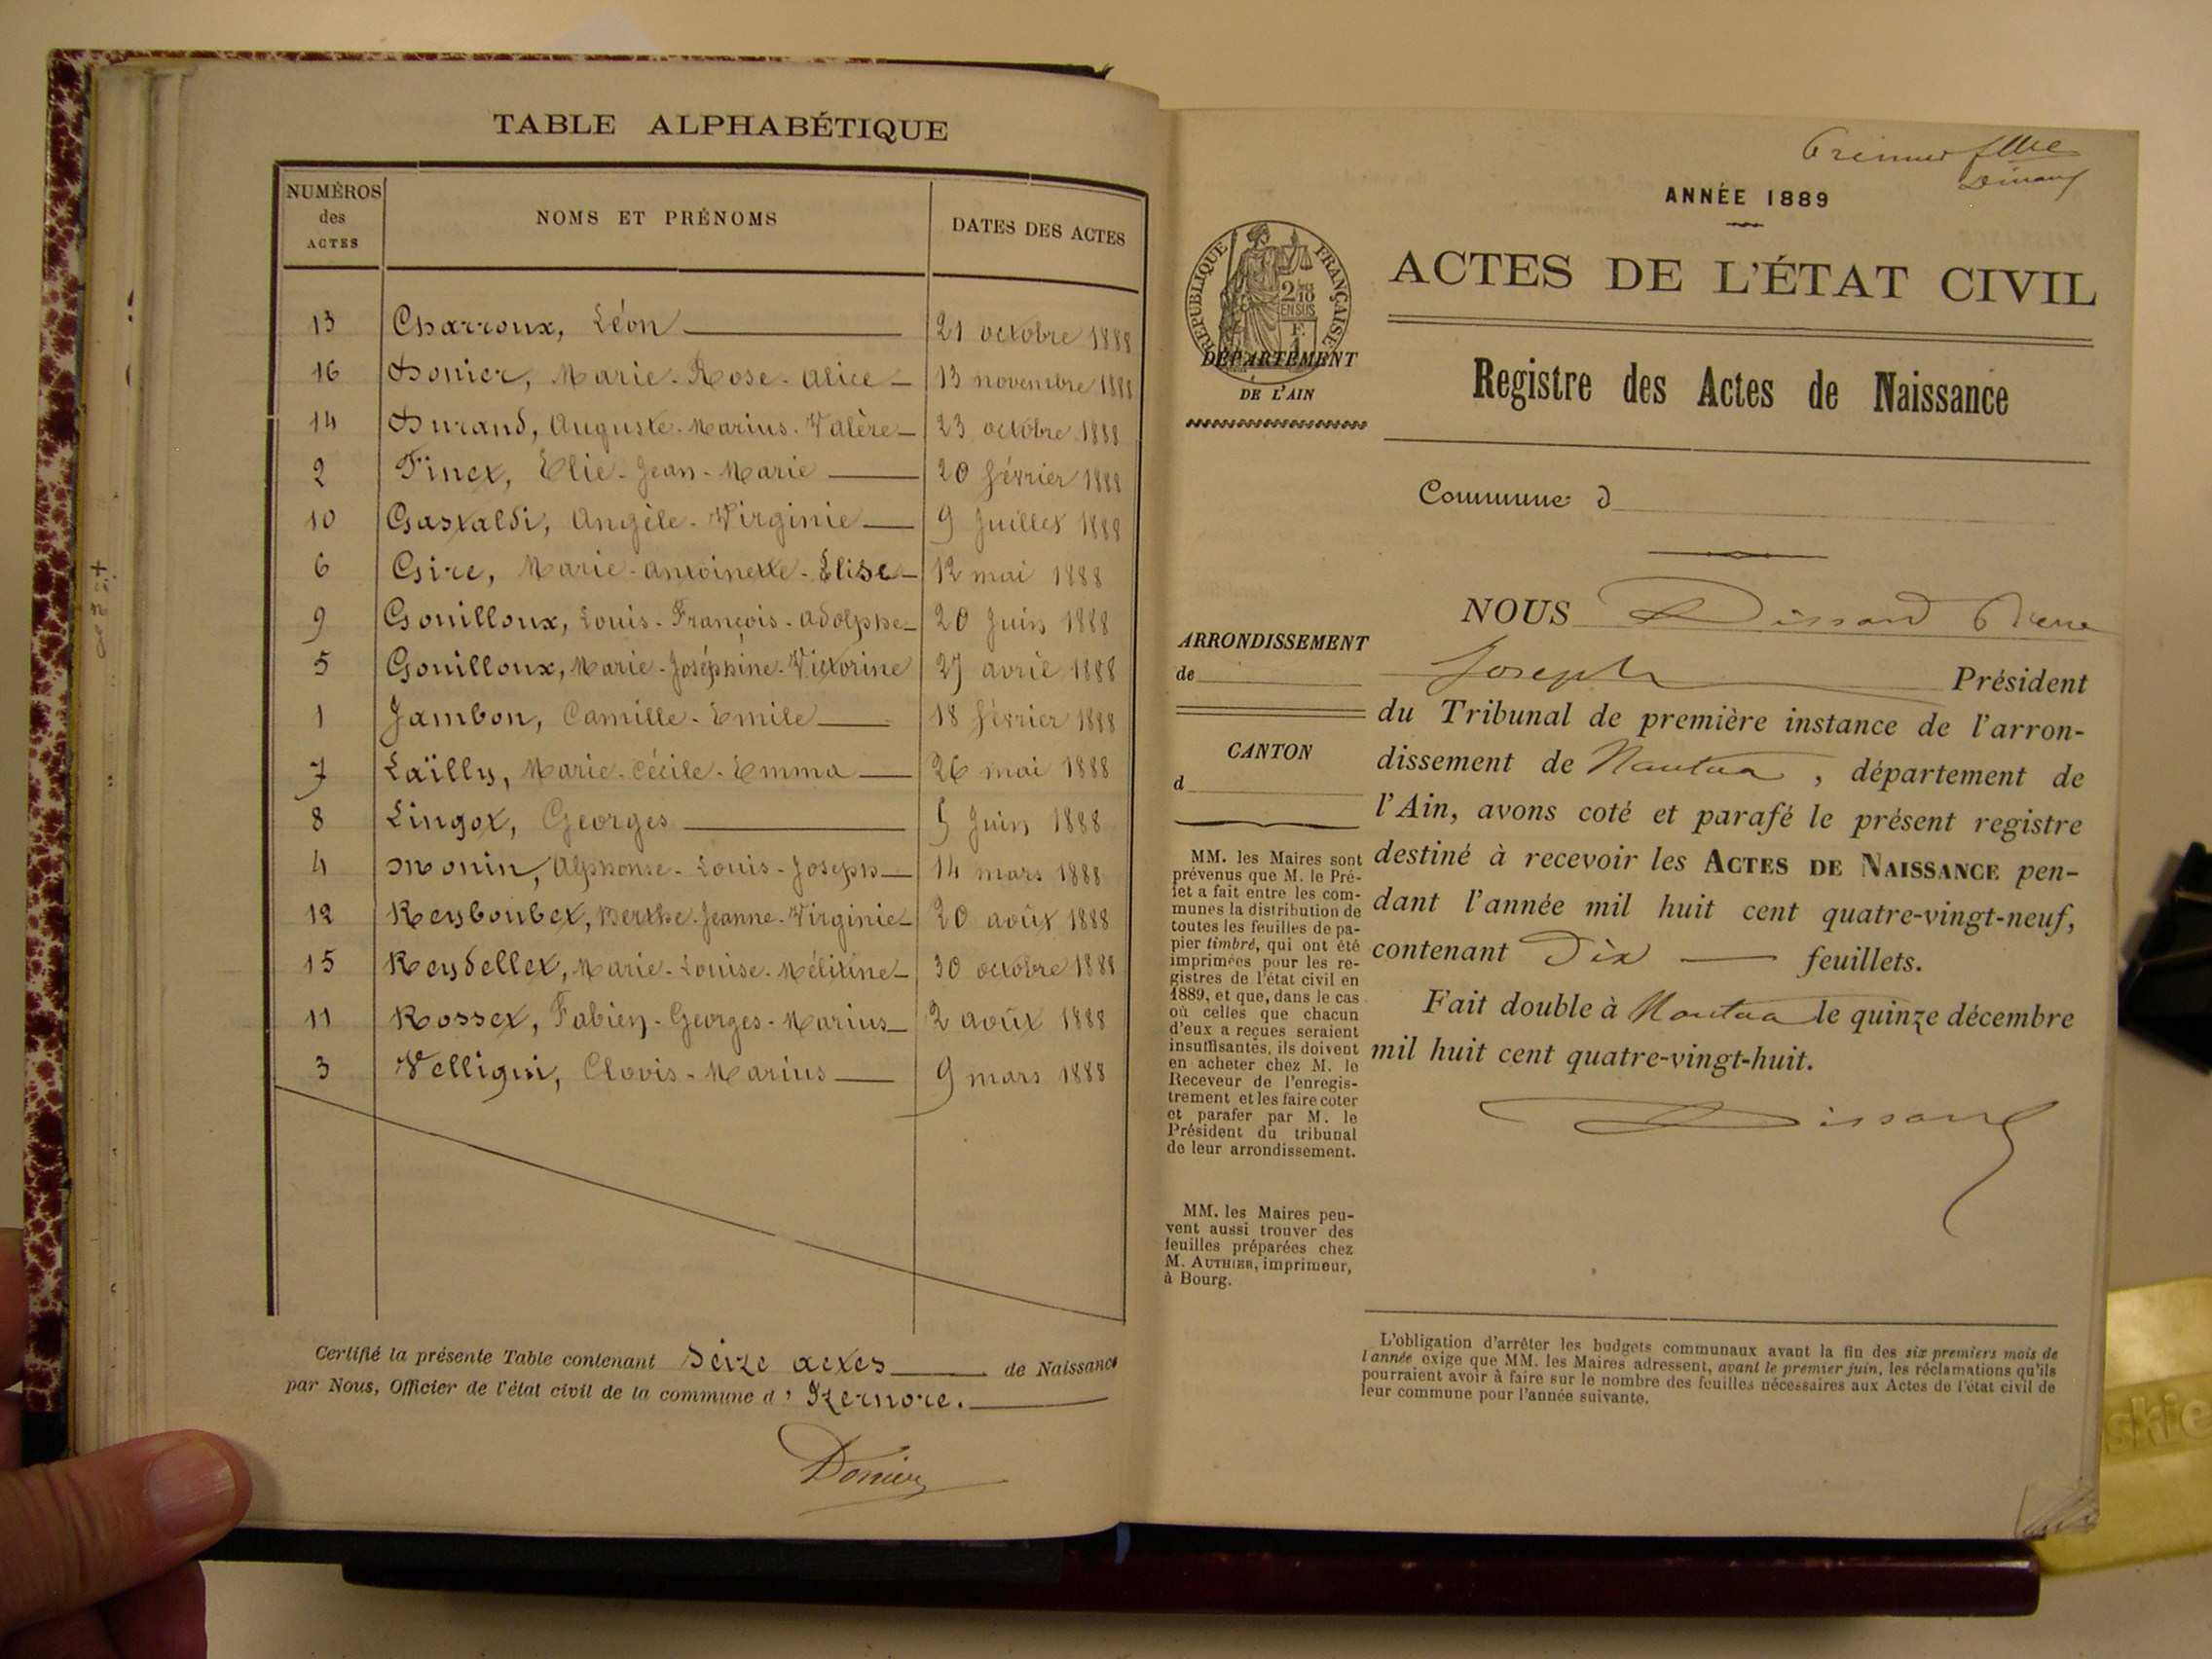 TABLE ALPHABÉTIQUE
NUMÉROS des ACTES NOMS ET PRÉNOMS DATES DES ACTES
13 Charroux, Léon 21 octobre 1888
16 Donier, Marie-Rose-Alice 13 novembre 1888
14 Durand, Auguste-Marius-Valère 23 octobre 1888
2 Finet, Elie-Jean-Marie 20 février 1888
10 Gastaldi, Angèle-Virginie 9 Juillet 1888
6 Gire, Marie-Antoinette-Elise 12 mai 1888
9 Gouilloux, Louis-François-Adolphe 20 Juin 1888
5 Gouilloux, Marie-Joséphine-Victorine 27 avril 1888
1 Jambon, Camille-Emile 18 février 1888
7 Laïlly, Marie-Cécile-Emma 26 mai 1888
8 Lingot, Georges 5 Juin 1888
4 Monin, Alphonse-Louis-Joseph 14 mars 1888
12 Reyboubet, Berthe-Jeanne-Virginie 20 août 1888
15 Reydellet, Marie-Louise-Mélitine 30 octobre 1888
11 Rosset, Fabien-Georges-Marius 2 août 1888
3 Velligin, Clovis-Marius 9 mars 1888
Certifié la présente Table contenant Seize actes de Naissance
par Nous, Officier de l'état civil de la commune d'Izernore.
Donier
ANNÉE 1889
RÉPUBLIQUE FRANÇAISE
2/10 EN SUS
ACTES DE L'ÉTAT CIVIL
DÉPARTEMENT
DE L'AIN
Registre des Actes de Naissance
Commune d
ARRONDISSEMENT
de
CANTON
d
MM. les Maires sont
prévenus que M. le Pré-
fet a fait entre les com-
munes la distribution de
toutes les feuilles de pa-
pier timbré, qui ont été
imprimées pour les re-
gistres de l'état civil en
1889, et que, dans le cas
où celles que chacun
d'eux a reçues seraient
insuffisantes, ils doivent
en acheter chez M. le
Receveur de l'enregis-
trement et les faire coter
et parafer par M. le
Président du tribunal
de leur arrondissement.
MM. les Maires peu-
vent aussi trouver des
feuilles préparées chez
M. AUTHIER, imprimeur,
à Bourg.
NOUS Dissard Pierre
Joseph Président
du Tribunal de première instance de l'arron-
dissement de Nantua, département de
l'Ain, avons coté et parafé le présent registre
destiné à recevoir les ACTES DE NAISSANCE pen-
dant l'année mil huit cent quatre-vingt-neuf,
contenant Dix feuillets.
Fait double à Nantua le quinze décembre
mil huit cent quatre-vingt-huit.
Dissard
L'obligation d'arrêter les budgets communaux avant la fin des six premiers mois de
l'année exige que MM. les Maires adressent, avant le premier juin, les réclamations qu'ils
pourraient avoir à faire sur le nombre des feuilles nécessaires aux Actes de l'état civil de
leur commune pour l'année suivante.